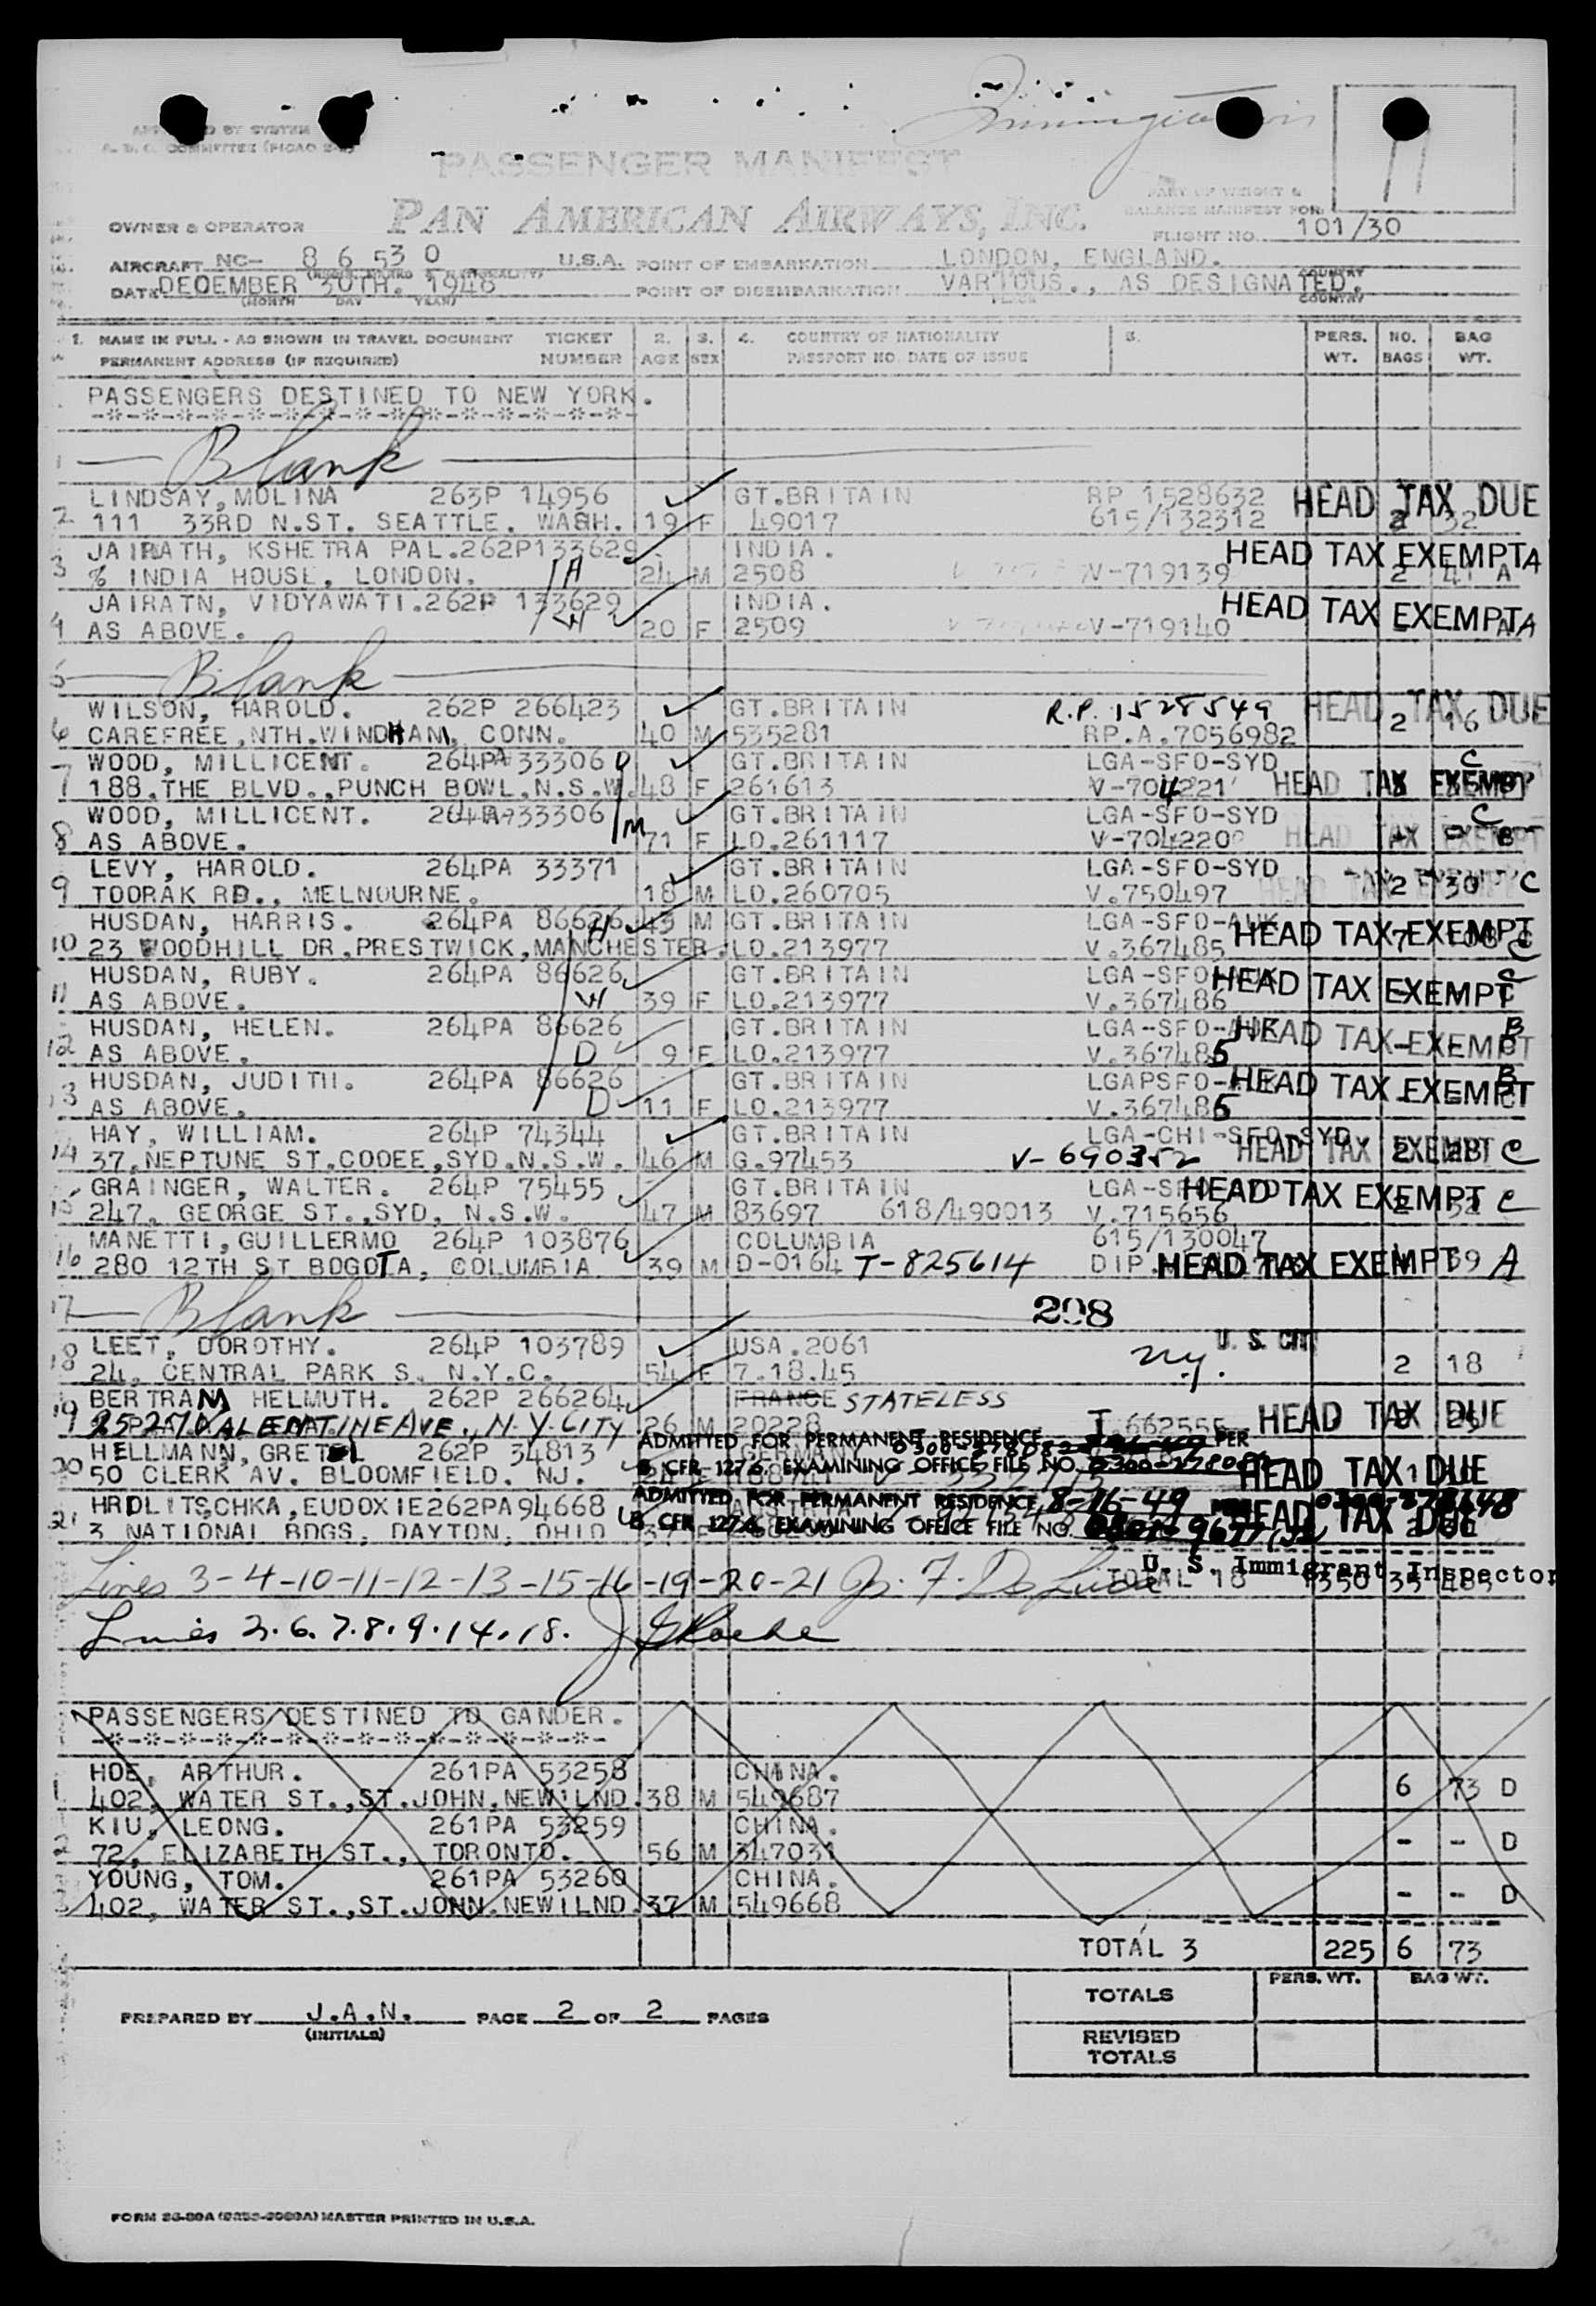 PASSENGER MANIFEST
PAN AMERICAN AIRWAYS, INC.
OWNER & OPERATOR
FLIGHT NO. 101/30
AIRCRAFT NC- 86530 U.S.A. POINT OF EMBARKATION LONDON, ENGLAND.
DATE DECEMBER 30TH. 1946 POINT OF DISEMBARKATION VARIOUS., AS DESIGNATED.
(MONTH DAY YEAR) COUNTRY
1. NAME IN FULL - AS SHOWN IN TRAVEL DOCUMENT TICKET 2. 3. 4. COUNTRY OF NATIONALITY 5. PERS. NO. BAG
PERMANENT ADDRESS (IF REQUIRED) NUMBER AGE SEX PASSPORT NO. DATE OF ISSUE WT. BAGS WT.
PASSENGERS DESTINED TO NEW YORK.
-*-*-*-*-*-*-*-*-*-*-*-*-*-*-*-
1 Blank
LINDSAY, MOLINA 263P 14956 GT.BRITAIN RP 1528632 HEAD TAX DUE
2 111 33RD N.ST. SEATTLE. WASH. 19 F 49017 615/132312 2 32
JAIRATH, KSHETRA PAL.262P133629 INDIA. HEAD TAX EXEMPT A
3 % INDIA HOUSE, LONDON. H 24 M 2508 V-719139 2 41 A
JAIRATN, VIDYAWATI.262P 133629 INDIA. HEAD TAX EXEMPT A
4 AS ABOVE. W 20 F 2509 V-719140
5 Blank
WILSON, HAROLD. 262P 266423 GT.BRITAIN R.P. 1528549 HEAD TAX DUE
6 CAREFREE,NTH.WINDHAM, CONN. 40 M 535281 RP.A.7056982 2 16
WOOD, MILLICENT. 264PA 33306 D GT.BRITAIN LGA-SFO-SYD C
7 188.THE BLVD.,PUNCH BOWL.N.S.W. 48 F 261613 V-704221 HEAD TAX EXEMPT
WOOD, MILLICENT. 264PA 33306 M GT.BRITAIN LGA-SFO-SYD C
8 AS ABOVE. 71 F LO.261117 V-704220 HEAD TAX EXEMPT
LEVY, HAROLD. 264PA 33371 GT.BRITAIN LGA-SFO-SYD
9 TOORAK RD., MELNOURNE. 18 M LO.260705 V.750497 HEAD TAX EXEMPT 2 30 C
HUSDAN, HARRIS. 264PA 86626 H 43 M GT.BRITAIN LGA-SFO-AUK
10 23 WOODHILL DR.PRESTWICK,MANCHESTER. LO.213977 V.367485 HEAD TAX EXEMPT C
HUSDAN, RUBY. 264PA 86626 GT.BRITAIN LGA-SFO- C
11 AS ABOVE. W 39 F LO.213977 V.367486 HEAD TAX EXEMPT
HUSDAN, HELEN. 264PA 86626 GT.BRITAIN LGA-SFO-AUK B
12 AS ABOVE. D 9 F LO.213977 V.367485 HEAD TAX EXEMPT
HUSDAN, JUDITH. 264PA 86626 GT.BRITAIN LGAPSFO- B
13 AS ABOVE. D 11 F LO.213977 V.367485 HEAD TAX EXEMPT
HAY, WILLIAM. 264P 74344 GT.BRITAIN LGA-CHI-SFO-SYD
14 37.NEPTUNE ST.COOEE,SYD.N.S.W. 46 M G.97453 V-690352 HEAD TAX EXEMPT C
GRAINGER, WALTER. 264P 75455 GT.BRITAIN LGA-SFO-SYD
15 247, GEORGE ST.,SYD, N.S.W. 47 M 83697 618/490013 V.715656 HEAD TAX EXEMPT C
MANETTI,GUILLERMO 264P 103876 COLUMBIA 615/130047
16 280 12TH ST BOGOTA, COLUMBIA 39 M D-0164 T-825614 DIP. HEAD TAX EXEMPT 39 A
17 Blank 298
LEET, DOROTHY. 264P 103789 USA.2061 U. S. Cit
18 24, CENTRAL PARK S. N.Y.C. 54 F 7.18.45 N.Y. 2 18
BERTRAM HELMUTH. 262P 266264 FRANCE STATELESS
19 2527 VALENTINE AVE., N.Y. CITY 26 M 20228 HEAD TAX DUE
HELLMANN, GRETEL 262P 34813 ADMITTED FOR PERMANENT RESIDENCE PER
20 50 CLERK AV. BLOOMFIELD. NJ. 8 CFR 127.6. EXAMINING OFFICE FILE NO. HEAD TAX DUE
HRDLITSCHKA,EUDOXIE262PA94668 ADMITTED FOR PERMANENT RESIDENCE 8-16-49
21 3 NATIONAL BDGS, DAYTON, OHIO 8 CFR 127.6. EXAMINING OFFICE FILE NO. HEAD TAX DUE
U. S. Immigrant Inspector
Lines 3-4-10-11-12-13-15-16-19-20-21 TOTAL 18 1350 35 485
Lines 2.6.7.8.9.14.18.
PASSENGERS DESTINED TO GANDER.
-*-*-*-*-*-*-*-*-*-*-*-*-*-*-
HOE, ARTHUR. 261PA 53258 CHINA.
1 402, WATER ST.,ST.JOHN,NEWILND. 38 M 549687 6 73 D
KIU, LEONG. 261PA 53259 CHINA.
2 72, ELIZABETH ST., TORONTO. 56 M 347031 - - D
YOUNG, TOM. 261PA 53260 CHINA.
3 402, WATER ST.,ST.JOHN.NEWILND. 37 M 549668 - - D
TOTAL 3 225 6 73
PERS. WT. BAG WT.
TOTALS
PREPARED BY J.A.N. PAGE 2 OF 2 PAGES
(INITIALS)
REVISED
TOTALS
MASTER PRINTED IN U.S.A.